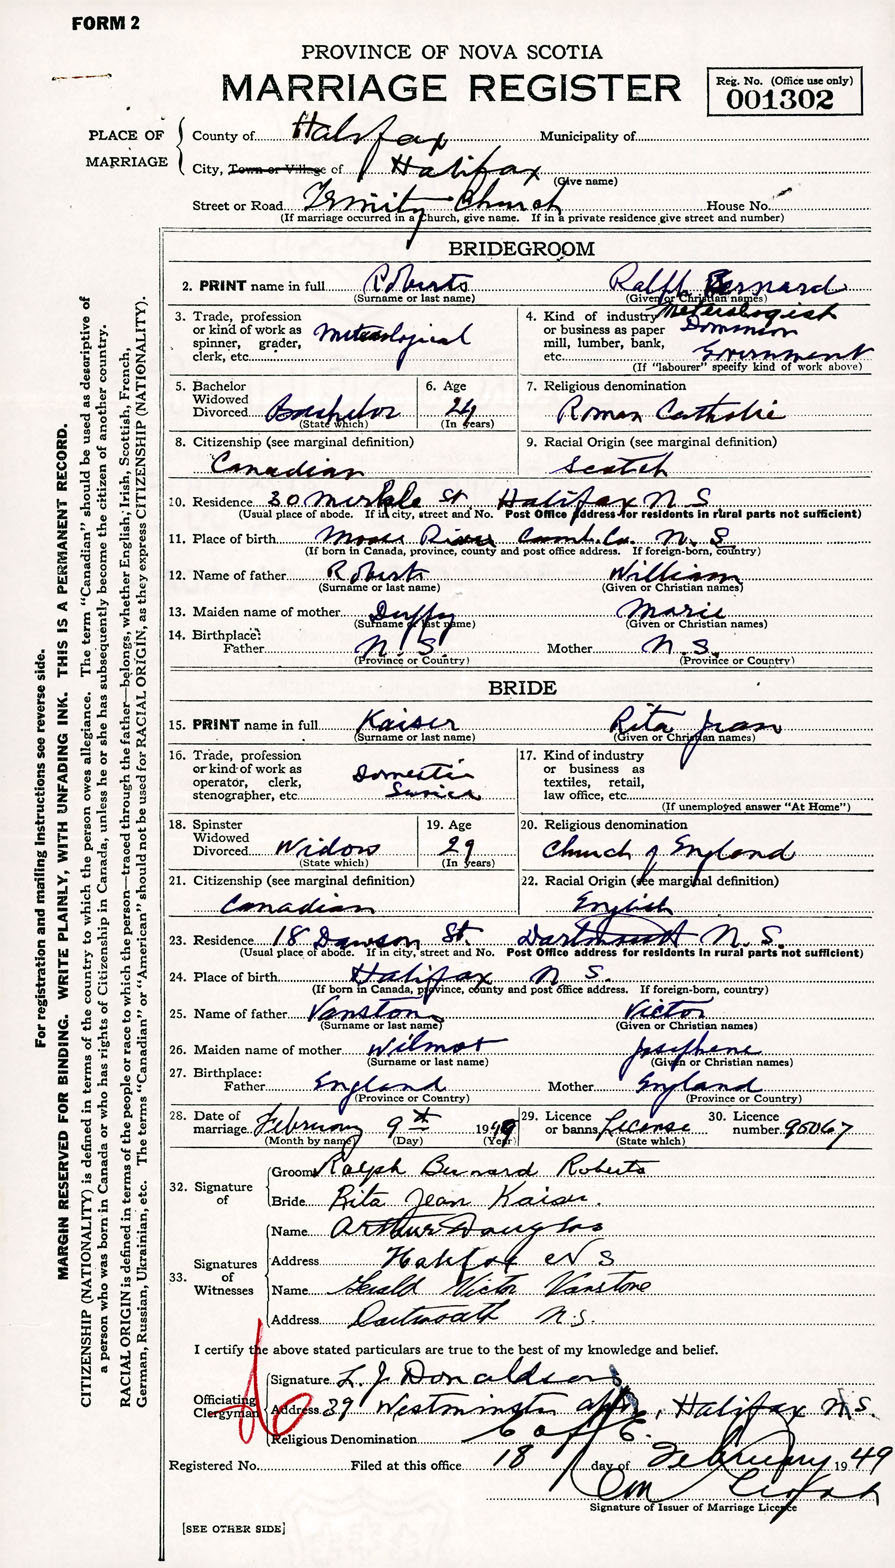 FORM 2
PROVINCE OF NOVA SCOTIA
MARRIAGE REGISTER
Reg. No. (Office use only)
001302
PLACE OF MARRIAGE
County of Halifax Municipality of
City, Town or Village of Halifax
(Give name)
Street or Road Trinity Church House No.
(If marriage occurred in a church, give name. If in a private residence give street and number)
BRIDEGROOM
2. PRINT name in full Roberts Ralph Bernard
(Surname or last name) (Given or Christian names)
3. Trade, profession or kind of work as spinner, grader, clerk, etc. Meteorological
4. Kind of industry or business as paper mill, lumber, bank, etc. Dominion Government
(If "labourer" specify kind of work above)
5. Bachelor Widowed Divorced Bachelor
(State which)
6. Age 24
(In years)
7. Religious denomination
Roman Catholic
8. Citizenship (see marginal definition)
Canadian
9. Racial Origin (see marginal definition)
Scotch
10. Residence 30 Merkle St. Halifax N S
(Usual place of abode. If in city, street and No. Post Office address for residents in rural parts not sufficient)
11. Place of birth Moose River Cumb. Co. N. S
(If born in Canada, province, county and post office address. If foreign-born, country)
12. Name of father Roberts William
(Surname or last name) (Given or Christian names)
13. Maiden name of mother Duffy Marie
(Surname or last name) (Given or Christian names)
14. Birthplace:
Father N. S. Mother N. S.
(Province or Country) (Province or Country)
BRIDE
15. PRINT name in full Kaiser Rita Jean
(Surname or last name) (Given or Christian names)
16. Trade, profession or kind of work as operator, clerk, stenographer, etc. Domestic Service
17. Kind of industry or business as textiles, retail, law office, etc.
(If unemployed answer "At Home")
18. Spinster Widowed Divorced Widow
(State which)
19. Age 29
(In years)
20. Religious denomination
Church of England
21. Citizenship (see marginal definition)
Canadian
22. Racial Origin (see marginal definition)
English
23. Residence 18 Dawson St. Dartmouth N. S.
(Usual place of abode. If in city, street and No. Post Office address for residents in rural parts not sufficient)
24. Place of birth Halifax N S.
(If born in Canada, province, county and post office address. If foreign-born, country)
25. Name of father Vanstone Victor
(Surname or last name) (Given or Christian names)
26. Maiden name of mother Wilmot Josephene
(Surname or last name) (Given or Christian names)
27. Birthplace:
Father England Mother England
(Province or Country) (Province or Country)
28. Date of marriage February 9th 1949
(Month by name) (Day) (Year)
29. Licence or banns License
(State which)
30. Licence number 95067
32. Signature of
Groom Ralph Bernard Roberts
Bride Rita Jean Kaiser.
33. Signatures of Witnesses
Name Arthur Douglas
Address Halifax N S
Name Gerald Victor Vanstone
Address Dartmouth N.S.
I certify the above stated particulars are true to the best of my knowledge and belief.
Officiating Clergyman
Signature L. J. Donaldson
Address 39 Westminster Halifax N.S.
Religious Denomination C of E.
Registered No. Filed at this office 18 day of February 1949
Signature of Issuer of Marriage Licence
[SEE OTHER SIDE]
For registration and mailing instructions see reverse side.
MARGIN RESERVED FOR BINDING. WRITE PLAINLY, WITH UNFADING INK. THIS IS A PERMANENT RECORD.
CITIZENSHIP (NATIONALITY) is defined in terms of the country to which the person owes allegiance. The term "Canadian" should be used as descriptive of
a person who was born in Canada or who has rights of Citizenship in Canada, unless he or she has subsequently become the citizen of another country.
RACIAL ORIGIN is defined in terms of the people or race to which the person—traced through the father—belongs, whether English, Irish, Scottish, French,
German, Russian, Ukrainian, etc. The terms "Canadian" or "American" should not be used for RACIAL ORIGIN, as they express CITIZENSHIP (NATIONALITY).